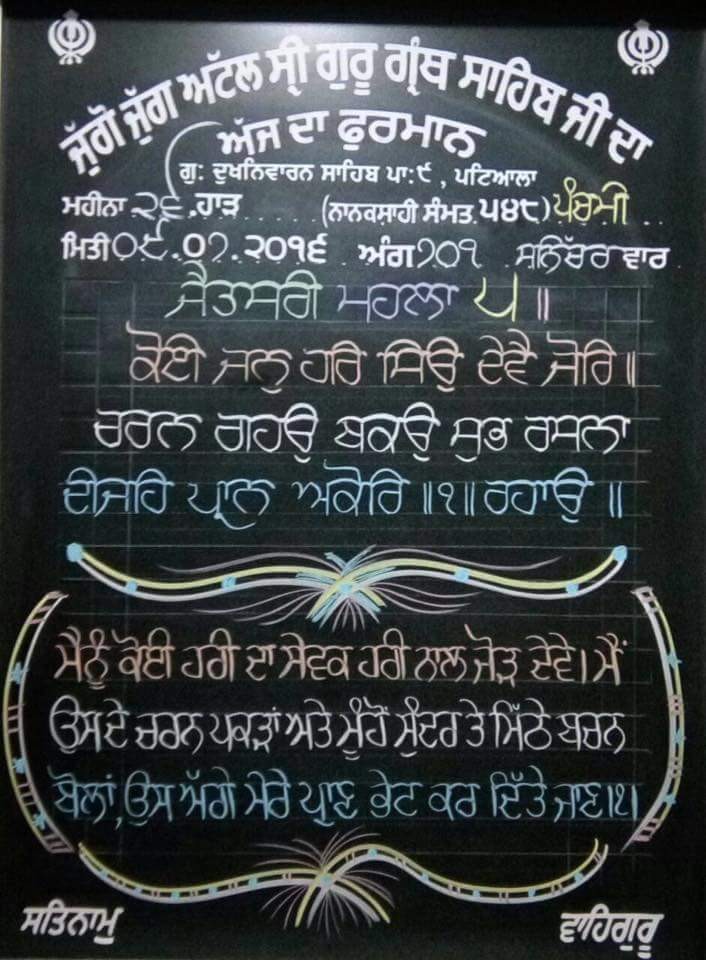 ਜੁੱਗੋ ਜੁੱਗ ਅਟੱਲ ਸ੍ਰੀ ਗੁਰੂ ਗ੍ਰੰਥ ਸਾਹਿਬ ਜੀ ਦਾ
ਅੱਜ ਦਾ ਫੁਰਮਾਨ
ਗੁ: ਦੁਖਨਿਵਾਰਨ ਸਾਹਿਬ ਪਾ:੯ , ਪਟਿਆਲਾ
ਮਹੀਨਾ ੨੬ ਹਾੜ (ਨਾਨਕਸ਼ਾਹੀ ਸੰਮਤ ੫੪੮) ਪੰਚਮੀ
ਮਿਤੀ ੦੯.੦੭.੨੦੧੬ ਅੰਗ ੭੦੧ ਸ਼ਨਿੱਚਰ ਵਾਰ
ਜੈਤਸਰੀ ਮਹਲਾ ੫ ॥
ਕੋਈ ਜਨੁ ਹਰਿ ਸਿਉ ਦੇਵੈ ਜੋਰਿ ॥
ਚਰਨ ਗਹਉ ਬਕਉ ਸੁਭ ਰਸਨਾ
ਦੀਜਹਿ ਪ੍ਰਾਨ ਅਕੋਰਿ ॥੧॥ ਰਹਾਉ ॥
ਮੈਨੂੰ ਕੋਈ ਹਰੀ ਦਾ ਸੇਵਕ ਹਰੀ ਨਾਲ ਜੋੜ ਦੇਵੇ। ਮੈਂ
ਉਸਦੇ ਚਰਨ ਪਕੜਾਂ ਅਤੇ ਮੂੰਹੋਂ ਸੁੰਦਰ ਤੇ ਮਿੱਠੇ ਬਚਨ
ਬੋਲਾਂ, ਉਸ ਅੱਗੇ ਮੇਰੇ ਪ੍ਰਾਣ ਭੇਟ ਕਰ ਦਿੱਤੇ ਜਾਣ।੧।
ਸਤਿਨਾਮੁ ਵਾਹਿਗੁਰੂ